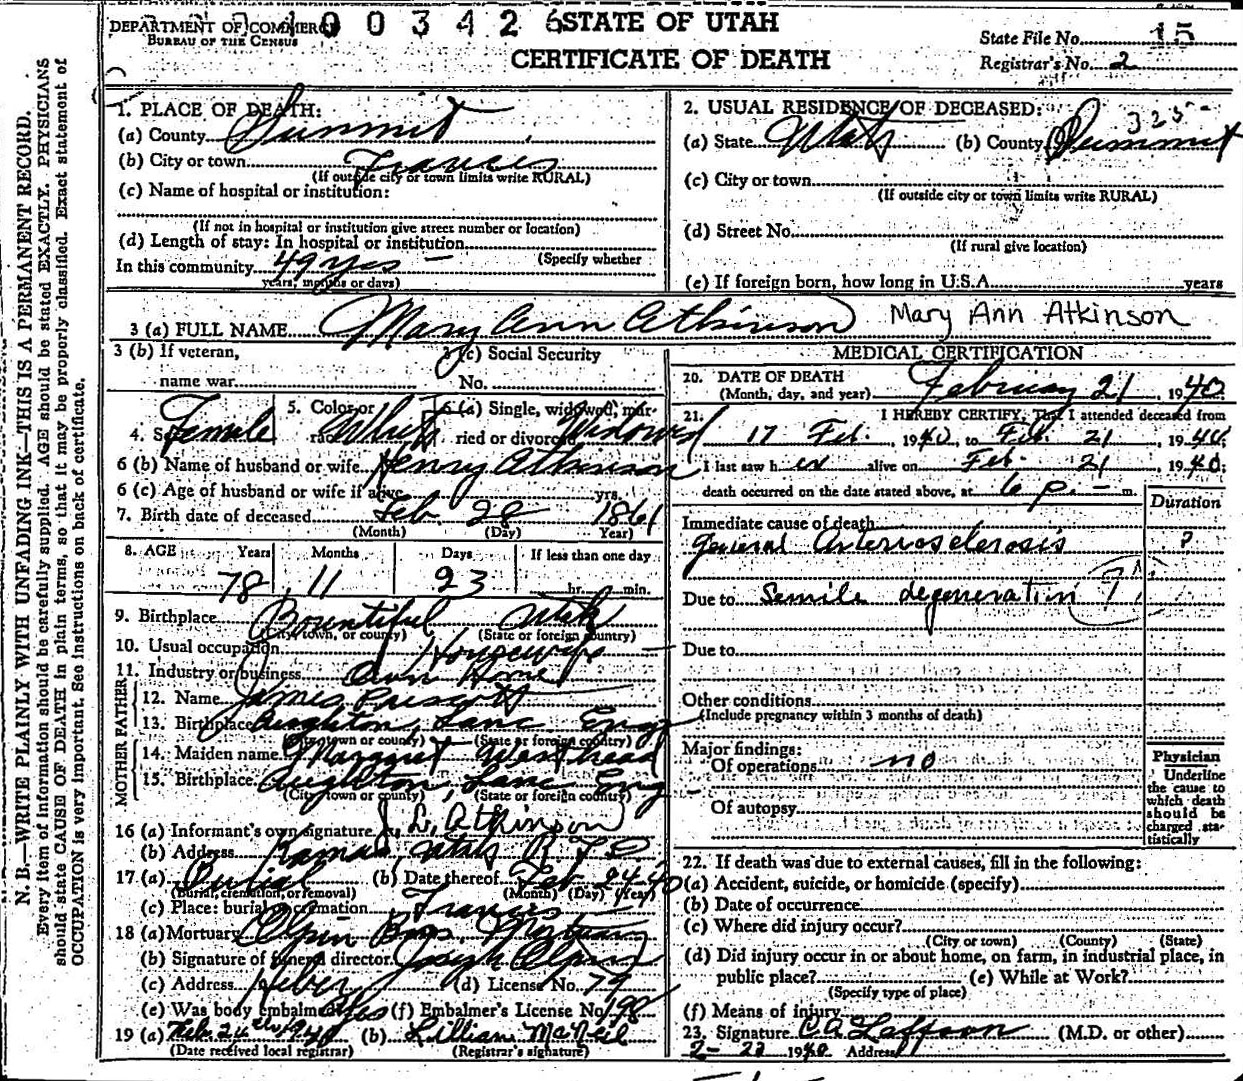 DEPARTMENT OF COMMERCE
BUREAU OF THE CENSUS
00342 6
STATE OF UTAH
CERTIFICATE OF DEATH
State File No. 15
Registrar's No. 2
N. B.—WRITE PLAINLY WITH UNFADING INK—THIS IS A PERMANENT RECORD.
Every item of information should be carefully supplied. AGE should be stated EXACTLY. PHYSICIANS
should state CAUSE OF DEATH in plain terms, so that it may be properly classified. Exact statement of
OCCUPATION is very important. See instructions on back of certificate.
1. PLACE OF DEATH:
(a) County Summit
(b) City or town Francis
(If outside city or town limits write RURAL)
(c) Name of hospital or institution:
(If not in hospital or institution give street number or location)
(d) Length of stay: In hospital or institution
(Specify whether
In this community 49 yrs —
years, months or days)
2. USUAL RESIDENCE OF DECEASED:
325
(a) State Utah (b) County Summit
(c) City or town
(If outside city or town limits write RURAL)
(d) Street No.
(If rural give location)
(e) If foreign born, how long in U.S.A. years
3 (a) FULL NAME Mary Ann Atkinson Mary Ann Atkinson
3 (b) If veteran, name war
3 (c) Social Security No.
4. Sex Female 5. Color or race White 6 (a) Single, widowed, married or divorced Widowed
6 (b) Name of husband or wife Henry Atkinson
6 (c) Age of husband or wife if alive yrs.
7. Birth date of deceased Feb. 28 1861
(Month) (Day) Year)
8. AGE Years Months Days If less than one day
78 11 23 hr. min.
9. Birthplace Bountiful Utah
(City town, or county) (State or foreign country)
10. Usual occupation Housewife
11. Industry or business Own Home
FATHER
12. Name James Prescott
13. Birthplace Aughton, Lanc Eng
(City town or county) (State or foreign country)
MOTHER
14. Maiden name Margaret Westhead
15. Birthplace Aughton, Lanc Eng
(City town or county) (State or foreign country)
16 (a) Informant's own signature L. Atkinson
(b) Address Kamas, Utah R F D
17 (a) Burial (b) Date thereof Feb. 24-40
(Burial, cremation, or removal) (Month) (Day) (Year)
(c) Place: burial or cremation Francis
18 (a) Mortuary Olpin Bros. Mortuary
(b) Signature of funeral director Joseph Olpin
(c) Address Heber (d) License No. 79
(e) Was body embalmed Yes (f) Embalmer's License No. 198
19 (a) Feb. 24th 1940 (b) Lillian McNeil
(Date received local registrar) (Registrar's signature)
MEDICAL CERTIFICATION
20. DATE OF DEATH February 21, 1940
(Month, day, and year)
21. I HEREBY CERTIFY, That I attended deceased from
17 Feb. 1940, to Feb. 21, 1940;
I last saw h er alive on Feb. 21, 1940;
death occurred on the date stated above, at 6 p. — m.
Duration
Immediate cause of death
General Arteriosclerosis ?
Due to Semile degeneration ?
Due to
Other conditions
(Include pregnancy within 3 months of death)
Major findings:
Of operations no
Of autopsy
Physician
Underline
the cause to
which death
should be
charged sta-
tistically
22. If death was due to external causes, fill in the following:
(a) Accident, suicide, or homicide (specify)
(b) Date of occurrence
(c) Where did injury occur?
(City or town) (County) (State)
(d) Did injury occur in or about home, on farm, in industrial place, in
public place? (e) While at Work?
(Specify type of place)
(f) Means of injury
23. Signature (M.D. or other)
1940 Address